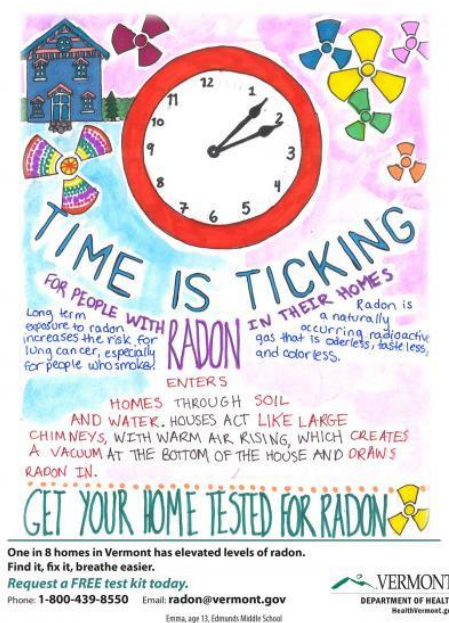 12
1
2
3
4
5
6
7
8
9
10
11
TIME IS TICKING
FOR PEOPLE WITH RADON IN THEIR HOMES
Long term
exposure to radon
increases the risk for
lung cancer, especially
for people who smoke!
Radon is
a naturally
occurring radioactive
gas that is oderless, tasteless,
and colorless.
ENTERS
HOMES THROUGH SOIL
AND WATER. HOUSES ACT LIKE LARGE
CHIMNEYS, WITH WARM AIR RISING, WHICH CREATES
A VACUUM AT THE BOTTOM OF THE HOUSE AND DRAWS
RADON IN.
GET YOUR HOME TESTED FOR RADON
One in 8 homes in Vermont has elevated levels of radon.
Find it, fix it, breathe easier.
Request a FREE test kit today.
Phone: 1-800-439-8550 Email: radon@vermont.gov
VERMONT
DEPARTMENT OF HEALT
HealthVermont.go
Emma, age 13, Edmunds Middle School